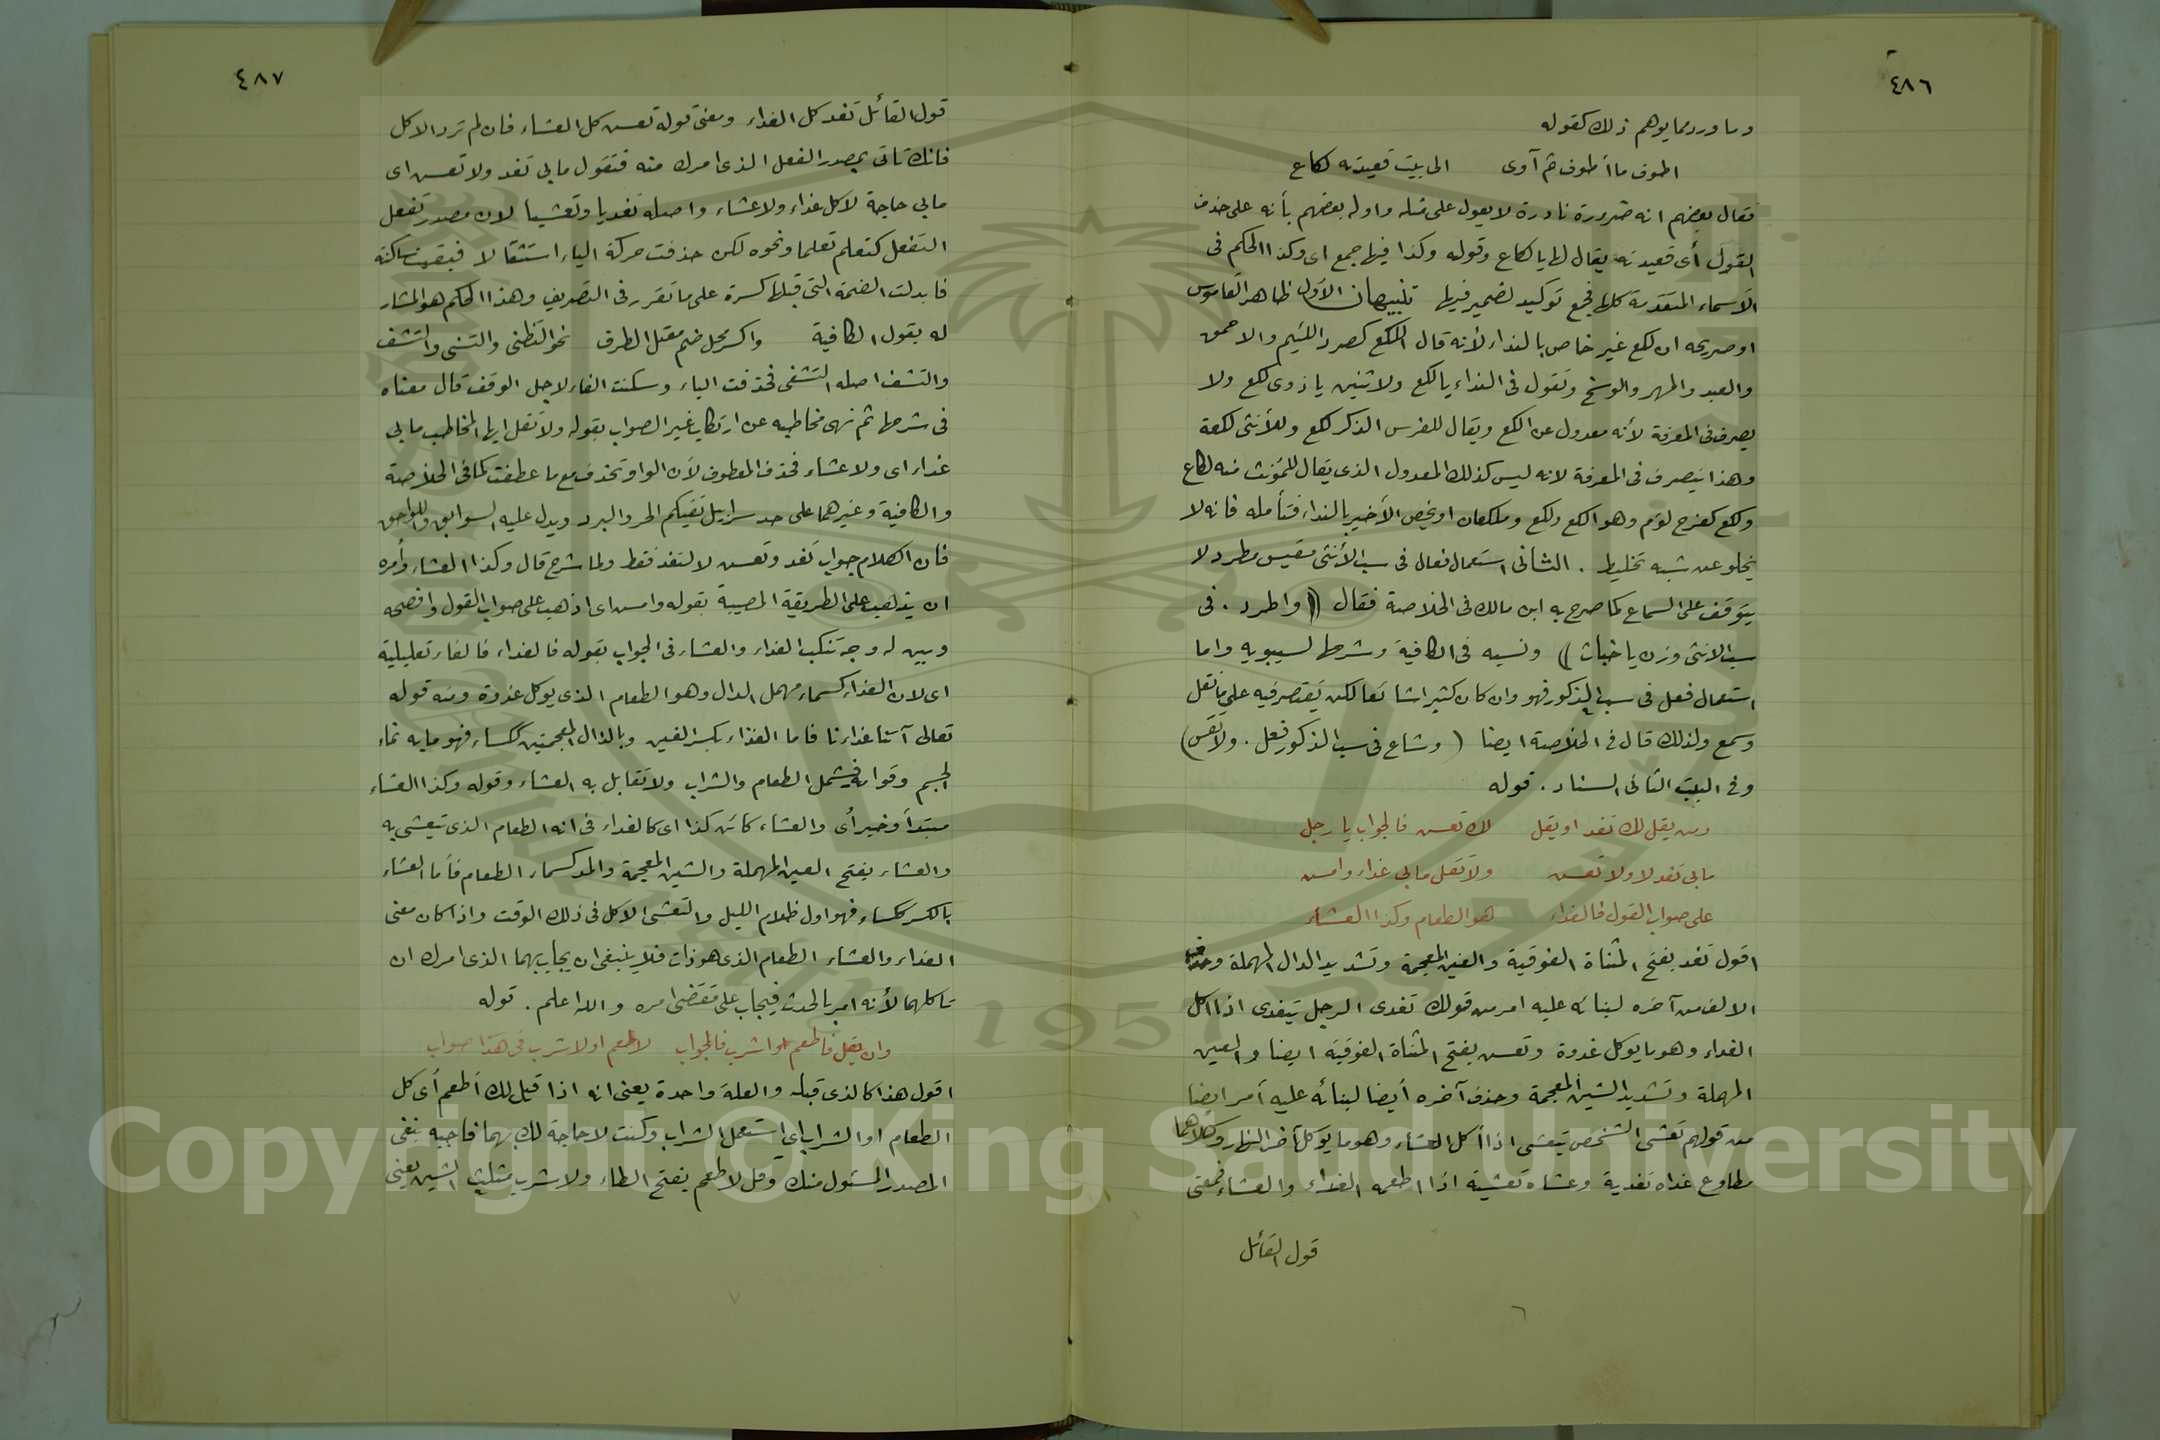 ٤٨٦
وما ورد مما يوهم ذلك كقوله
اطوف ما أطوف ثم آوى الى بيت قعيدته لكاع
فقال بعضهم انه ضرورة نادرة لا يعول على مثله واوله بعضهم بأنه على حذف
القول أى قعيدته يقال لها يا لكاع وقوله وكذا فيها جمع اى وكذا الحكم فى
الأسماء المتقدمة كلها فجمع توكيد لضمير فيها تنبيهان الأول ظاهر القاموس
او صريحه ان لكع غير خاص بالنداء لأنه قال اللكع كصرد اللئيم والاحمق
والعبد والمهر والوسخ وتقول فى النداء يا لكع ولاثنين يا ذوى لكع ولا
يصرف فى المعرفة لأنه معدول عن الكع ويقال للفرس الذكر لكع وللأنثى لكعة
وهذا ينصرف فى المعرفة لانه ليس كذلك المعدول الذى يقال للمؤنث منه لكاع
ولكع كفرح لؤم وهو الكع ولكع وملكعان او يخص الأخير بالنداء فتأمله فانه لا
يخلو عن شبه تخليط . الثانى استعمال فعال فى سب الأنثى مقيس مطرد لا
يتوقف على السماع كما صرح به ابن مالك فى الخلاصة فقال (واطرد . فى
سب الانثى وزن يا خباث) ونسبه فى الكافية وشرحها لسيبويه واما
استعمال فعل فى سب الذكور فهو وان كان كثيرا شائعا لكن يقتصر فيه على ما نقل
وسمع ولذلك قال فى الخلاصة ايضا (وشاع فى سب الذكور فعل . ولا تقس)
وفى البيت الثانى السناد . قوله
ومن يقل لك تغد او يقل لك تعش فالجواب يا رجل
ما بى تغد لا ولا تعش ولا تقل ما بى غداء وامش
على صواب القول فالغداء لهو الطعام وكذا العشاء
اقول تغد بفتح المثناة الفوقية والغين المعجمة وتشديد الدال المهملة وحذف
الالف من آخره لبنائه عليه امر من قولك تغدى الرجل يتغدى اذا اكل
الغداء وهو ما يوكل غدوة وتعش بفتح المثناة الفوقية ايضا والعين
المهملة وتشديد الشين المعجمة وحذف آخره أيضا لبنائه عليه أمر ايضا
من قولهم تعشى الشخص يتعشى اذا أكل العشاء وهو ما يوكل آخر النهار وكلاهما
مطاوع غداه تغدية وعشاه تعشية اذا اطعمه الغداء والعشاء فمعنى
قول القائل
٤٨٧
قول القائل تغد كل الغداء ومعنى قوله تعش كل العشاء فان لم ترد الاكل
فانك تأتى بمصدر الفعل الذى امرك منه فتقول ما بى تغد ولا تعش اى
ما بى حاجة لاكل غداء ولا عشاء واصله تغديا وتعشيا لان مصدر تفعل
التفعل كتعلم تعلما ونحوه لكن حذفت حركة الياء استثقالا فبقيت ساكنة
فابدلت الضمة التى قبلها كسرة على ما تقرر فى التصريف وهذا الحكم هو المشار
له بقول الكافية واكسر محل ضم معتل الطرف نحو التظنى والتسنى والتشف
والتشف اصله التشفى فحذفت الياء وسكنت الفاء لاجل الوقف قال معناه
فى شرحها ثم نهى مخاطبه عن ارتكاب غير الصواب بقوله ولا تقل ايها المخاطب ما بى
غداء اى ولا عشاء فحذف المعطوف لأن الواو تحذف مع ما عطفت كما فى الخلاصة
والكافية وغيرهما على حد سرابيل تقيكم الحر والبرد ويدل عليه السوابق واللواحق
فان الكلام جواب تغد وتعش لا لتغد فقط ولما شرح قال وكذا العشاء وأمره
ان يذهب على الطريقة المصيبة بقوله وامش اى اذهب على صواب القول وافصحه
وبين له وجه تنكب الغداء والعشاء فى الجواب بقوله فالغداء فالفاء تعليلية
اى لان الغداء كسماء مهمل الدال وهو الطعام الذى يوكل غدوة ومنه قوله
تعالى آتنا غداءنا فاما الغذاء بكسر الغين وبالذال المعجمتين ككساء فهو ما به نماء
الجسم وقوامه فيشمل الطعام والشراب ولا تقابل به العشاء وقوله وكذا العشاء
مبتدأ وخبر أى والعشاء كائن كذا اى كالغداء فى انه الطعام الذى تتعشى به
والعشاء بفتح العين المهملة والشين المعجمة والمد كسماء الطعام فأما العشاء
بالكسر ككساء فهو اول ظلام الليل والتعشى الاكل فى ذلك الوقت واذا كان معنى
الغداء والعشاء الطعام الذى هو ذات فلا ينبغى ان يجاب بهما الذى امرك ان
تأكلهما لأنه امر بالحدث فيجاب على مقتضى امره والله اعلم . قوله
وان يقل فاطعم او اشرب فالجواب لا طعم او لا شرب فى هذا صواب
اقول هذا كالذى قبله والعلة واحدة يعنى انه اذا قيل لك أطعم أى كل
الطعام او الشراب اى استعمل الشراب وكنت لا حاجة لك بهما فاجبه بنفى
المصدر المسئول منك وقل لا طعم بفتح الطاء ولا شرب مثلث الشين يعنى
Copyright © King Saud University
1957